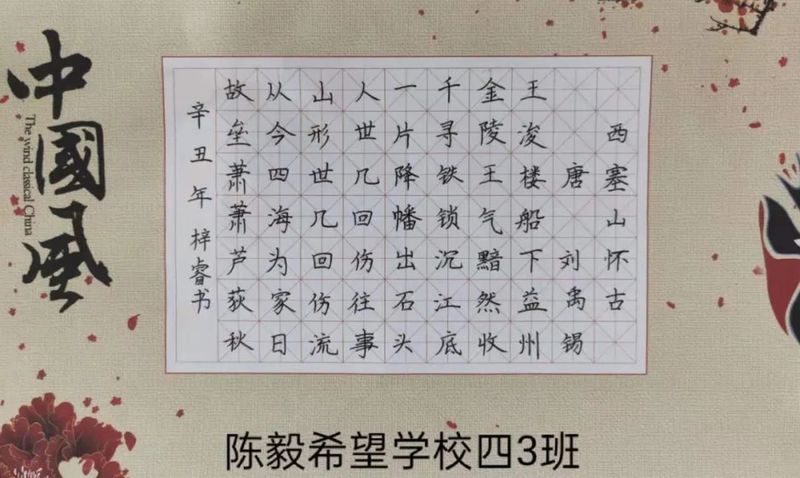 中國風
The wind classical China
西塞山怀古
唐 刘禹锡
王浚楼船下益州
金陵王气黯然收
千寻铁锁沉江底
一片降幡出石头
人世几回伤往事
山形世几回伤流
从今四海为家日
故垒萧萧芦荻秋
辛丑年梓睿书
陈毅希望学校四3班